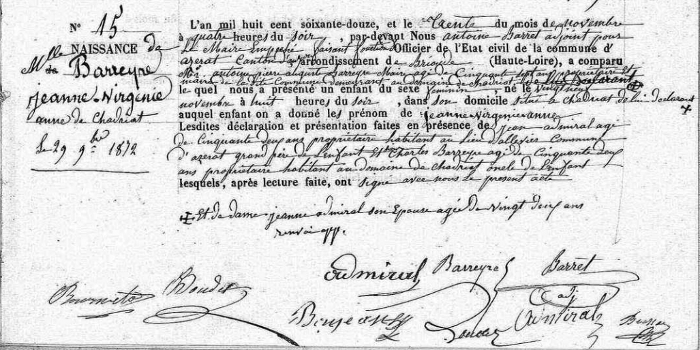 N° 15
NAISSANCE de
Mlle
Barreyre
jeanne-Virginie
anne de Chadriat
Le 29 9bre 1872
L'an mil huit cent soixante-douze, et le trente du mois de novembre
à quatre heures du soir, par-devant Nous antoine Barret adjoint pour
Le Maire Empeché faisant fonctions Officier de l'Etat civil de la commune d'
azerat Canton d arrondissement de Brioude (Haute-Loire), a comparu
antoine pierre august Barreyre Maire agé de Cinquante ans propriétaire et
Maire de la dite Commune demeurant au domaine de Chadriat declarant
le quel nous a présenté un enfant du sexe feminin né le vingt neuf
novembre à huit heures du soir, dans son domicile situé a Chadriat de lui declarant
auquel enfant on a donné les prénom de jeanne Virginie anne
Lesdites déclaration et présentation faites en présence de jean admiral agé
de Cinquante deux ans propriétaire habitant au lieu d'allevier Commune
d'azerat grand père de L'enfant Et Charles Barreyre agé de Cinquante deux
ans propriétaire habitant au domaine de Chadriat oncle de l'enfant
lesquels, après lecture faite, ont signé avec nous le present acte
Et de dame jeanne admiral son Epouse agée de vingt deux ans
renvoi app.
admiral Barreyre Barret
adj
Boudet
admiral